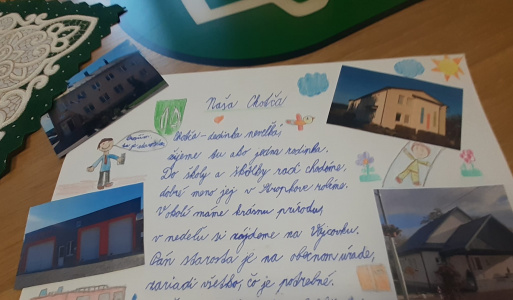 Naša Chotča
Chotča - dedinka neveľká,
žijeme tu ako jedna rodinka.
Do školy a škôlky radi chodíme,
dobré meno jej v Stropkove robíme.
V okolí máme krásnu prírodu,
v nedeľu si zájdeme na
Pán starosta je na obecnom úrade,
zariadi všetko, čo je potrebné.